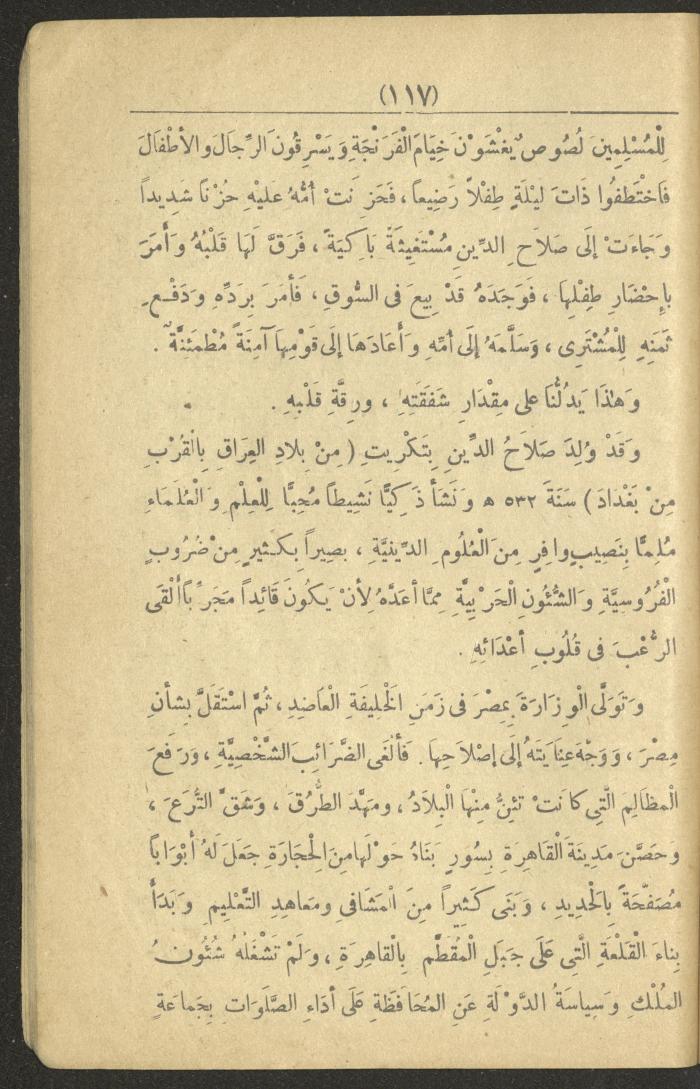 (١١٧)
لِلْمُسْلِمِينَ لُصُوصٌ يَغْشَوْنَ خِيَامَ الْفَرَنْجَةِ وَيَسْرِقُونَ الرِّجَالَ والأطْفَالَ
فَاخْتَطَفُوا ذَاتَ لَيْلَةٍ طِفْلاً رَضِيعاً ، فَحَزِنَتْ أُمُّهُ عَلَيْهِ حُزْناً شَدِيداً
وَجَاءَتْ إِلَى صَلَاحِ الدِّينِ مُسْتَغِيثَةً بَاكِيَةً ، فَرَقَّ لَهَا قَلْبُهُ وَأَمَرَ
بِإِحْضَارِ طِفْلِهَا ، فَوَجَدَهُ قَدْ بِيعَ فى السُّوقِ ، فَأَمَرَ بِرَدِّهِ وَدَفْعِ
ثَمَنِهِ لِلْمُشْتَرِى ، وَسَلَّمَهُ إِلَى أُمِّهِ وَأَعَادَهَا إِلَى قَوْمِهَا آمِنَةً مُطْمَئِنَّةً .
وَهٰذَا يَدُلُّنَا على مِقْدَارِ شَفَقَتِهِ ، ورِقَّةِ قَلْبِهِ .
وَقَدْ وُلِدَ صَلَاحُ الدِّينِ بِتَكْرِيتِ ( مِنْ بِلادِ العِرَاقِ بِالْقُرْبِ
مِنْ بَغْدَادَ ) سَنَةَ ٥٣٢ ه وَنَشَأَ ذَكِيًّا نَشِيطاً مُحِبًّا لِلْعِلْمِ وَالْعُلَمَاءِ
مُلِمًّا بِنَصِيبٍ وافِرٍ مِنَ الْعُلُومِ الدِّينِيَّةِ ، بصِيراً بِكَثِيرٍ مِنْ ضُرُوبِ
الْفُرُوسِيَّةِ وَالشُّئُونِ الْحَرْبِيَّةِ مِمَّا أَعَدَّهُ لِأَنْ يَكُونَ قَائِداً مُجَرَّباً أَلْقَى
الرُّعْبَ فى قُلُوبِ أَعْدَائِهِ .
وَتَوَلَّى الْوِزَارَةَ بِمِصْرَ فى زَمَنِ الْخَلِيفَةِ الْعَاضِدِ ، ثُمَّ اسْتَقَلَّ بِشَأْنِ
مِصْرَ ، وَوَجَّهَ عِنَايَتَهُ إِلَى إِصْلَاحِهَا . فَأَلْغَى الضَّرَائِبَ الشَّخْصِيَّةِ ، وَرَفَعَ
الْمَظَالِمَ الَّتِى كَانَتْ تَئِنُّ مِنْهَا الْبِلَادُ ، ومَهَّدَ الطُّرُقَ ، وَشَقَّ التُّرَعَ ،
وحَصَّنَ مَدِينَةَ الْقَاهِرَةِ بِسُورٍ بَنَاهُ حَوْلَهَا مِنَ الْحِجَارَةِ جَعَلَ لَهُ أَبْوَاباً
مُصَفَّحَةً بِالْحَدِيدِ ، وَبَنَى كَثِيراً مِنَ الْمَشَافِى ومَعَاهِدِ التَّعْلِيمِ وَبَدَأَ
بِنَاءَ الْقَلْعَةِ الَّتِى عَلَى جَبَلِ الْمُقَطَّمِ بِالْقَاهِرَةِ ، وَلَمْ تَشْغَلْهُ شُئُونُ
الْمُلْكِ وَسِيَاسَةُ الدَّوْلَةِ عَنِ الْمُحَافَظَةِ عَلَى أَدَاءِ الصَّلَوَاتِ بِجَمَاعَةٍ